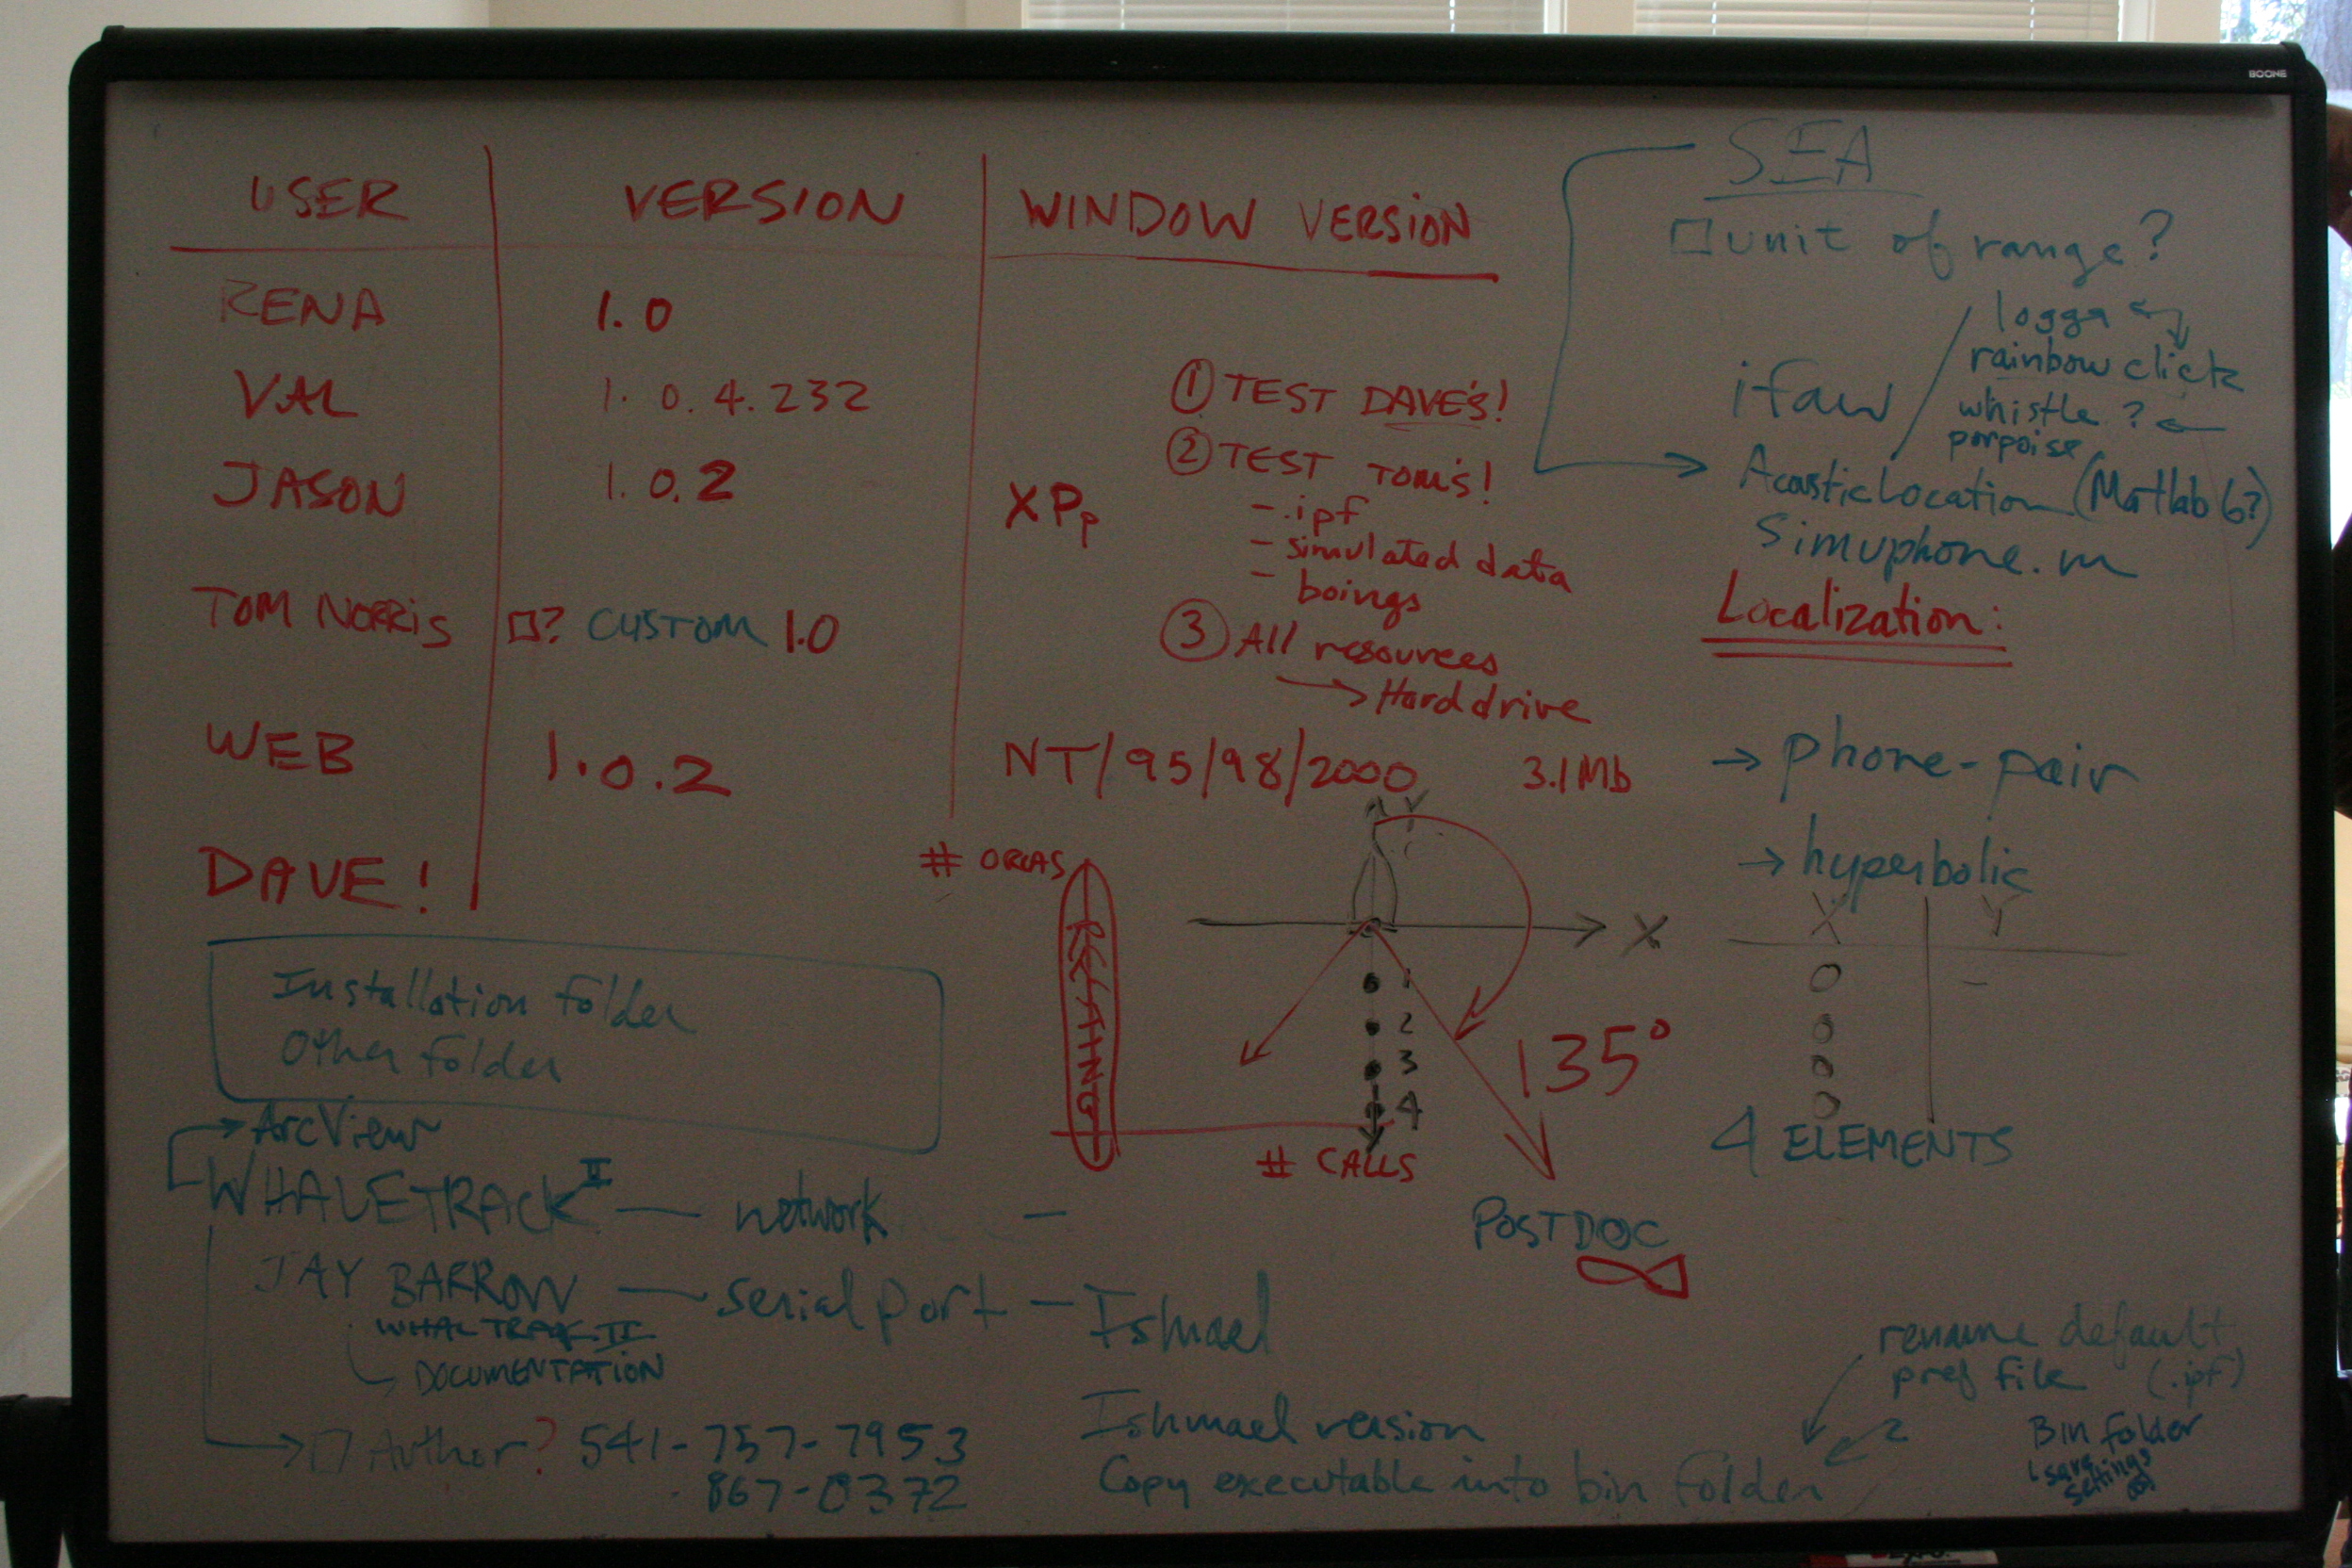 BOONE
USER VERSION WINDOW VERSION
RENA 1.0
VAL 1.0.4.232
JASON 1.0.2 XPp
TOM NORRIS ? CUSTOM 1.0
WEB 1.0.2 NT/95/98/2000 3.1Mb
DAVE!
① TEST DAVE'S!
② TEST TOM'S!
- .ipf
- simulated data
- boings
③ All resources
→ Hard drive
SEA
□ unit of range?
logga
rainbow click
whistle ?
porpoise
ifaw
Acoustic Location (Matlab 6?)
Simuphone.m
Localization:
→ phone-pair
→ hyperbolic
X Y
0 -
0
0
0
4 ELEMENTS
# ORCAS
# CALLS
Y
X
1
2
3
4
Y
135°
POSTDOC
Installation folder
Other folder
→ ArcView
WHALETRACK II — network —
JAY BARROW — serial port — Ishmael
WHALTRACK II
DOCUMENTATION
→ □ Author? 541-757-7953
867-0372
Ishmael version
Copy executable into bin folder
rename default
pref file (.ipf)
Bin folder
save
settings